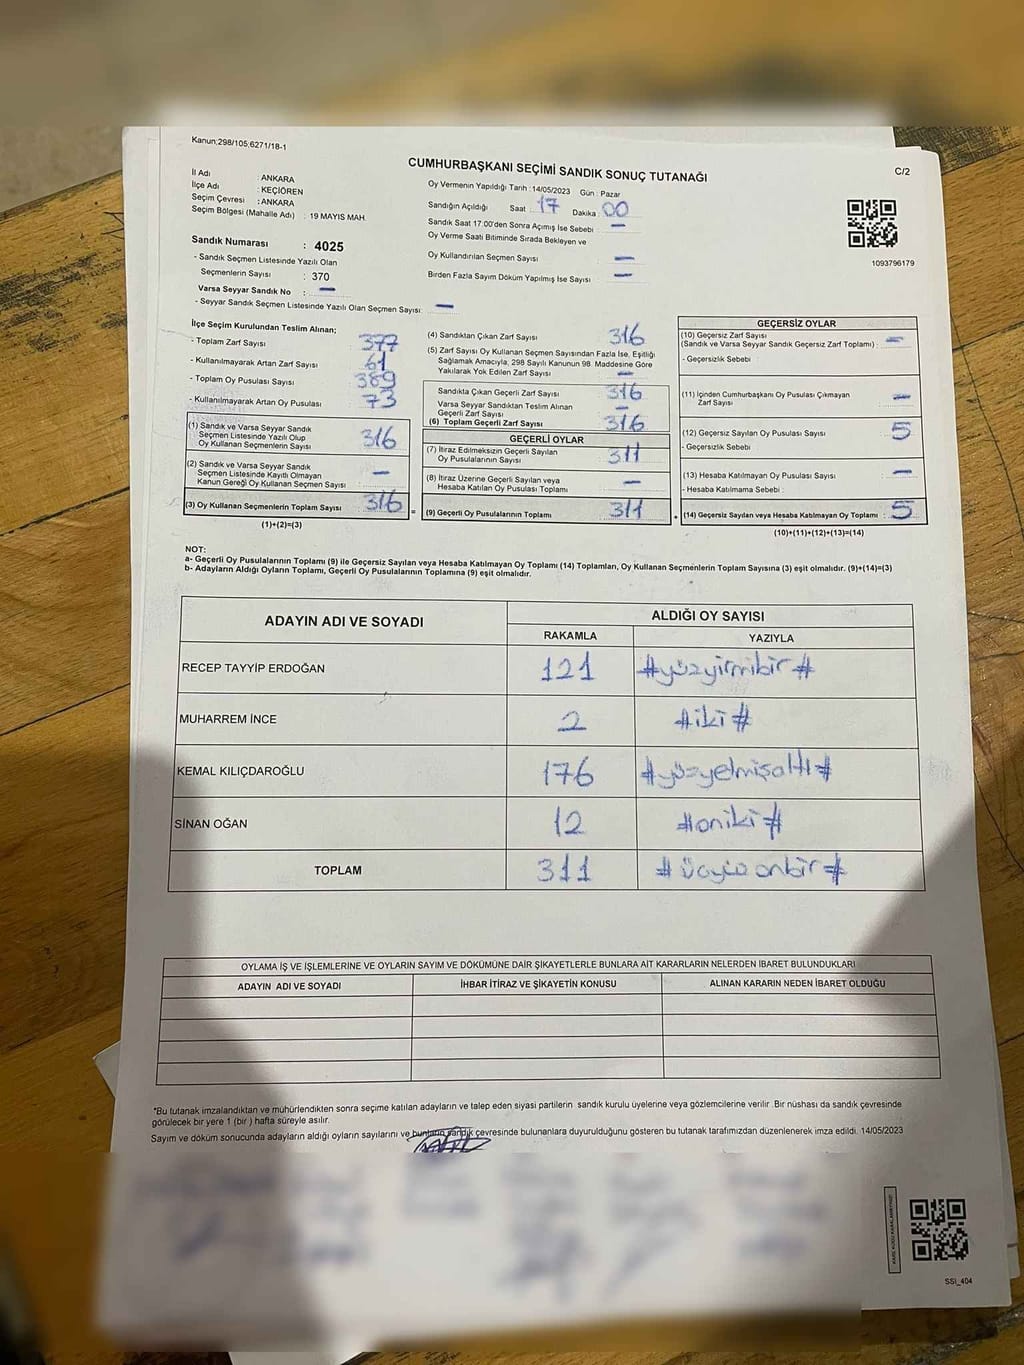 Kanun;298/105;6271/18-1
CUMHURBAŞKANI SEÇİMİ SANDIK SONUÇ TUTANAĞI
C/2
İl Adı : ANKARA
İlçe Adı : KEÇİÖREN
Seçim Çevresi : ANKARA
Seçim Bölgesi (Mahalle Adı) : 19 MAYIS MAH.
Sandık Numarası : 4025
- Sandık Seçmen Listesinde Yazılı Olan
Seçmenlerin Sayısı : 370
Varsa Seyyar Sandık No : —
- Seyyar Sandık Seçmen Listesinde Yazılı Olan Seçmen Sayısı: —
Oy Vermenin Yapıldığı Tarih :14/05/2023 Gün : Pazar
Sandığın Açıldığı Saat : 17 Dakika : 00
Sandık Saat 17:00'den Sonra Açımış İse Sebebi : —
Oy Verme Saati Bitiminde Sırada Bekleyen ve
Oy Kullandırılan Seçmen Sayısı —
Birden Fazla Sayım Döküm Yapılmış İse Sayısı : —
1093796179
İlçe Seçim Kurulundan Teslim Alınan;
- Toplam Zarf Sayısı 377
- Kullanılmayarak Artan Zarf Sayısı : 61
- Toplam Oy Pusulası Sayısı 389
- Kullanılmayarak Artan Oy Pusulası : 73
(1) Sandık ve Varsa Seyyar Sandık
Seçmen Listesinde Yazılı Olup
Oy Kullanan Seçmenlerin Sayısı 316
(2) Sandık ve Varsa Seyyar Sandık
Seçmen Listesinde Kayıtlı Olmayan
Kanun Gereği Oy Kullanan Seçmen Sayısı —
(3) Oy Kullanan Seçmenlerin Toplam Sayısı 316
(1)+(2)=(3)
(4) Sandıktan Çıkan Zarf Sayısı 316
(5) Zarf Sayısı Oy Kullanan Seçmen Sayısından Fazla İse, Eşitliği
Sağlamak Amacıyla, 298 Sayılı Kanunun 98. Maddesine Göre
Yakılarak Yok Edilen Zarf Sayısı —
Sandıkta Çıkan Geçerli Zarf Sayısı 316
Varsa Seyyar Sandıktan Teslim Alınan
Geçerli Zarf Sayısı —
(6) Toplam Geçerli Zarf Sayısı 316
GEÇERLİ OYLAR
(7) İtiraz Edilmeksizin Geçerli Sayılan
Oy Pusulalarının Sayısı 311
(8) İtiraz Üzerine Geçerli Sayılan veya
Hesaba Katılan Oy Pusulası Toplamı —
= (9) Geçerli Oy Pusulalarının Toplamı 311
GEÇERSİZ OYLAR
(10) Geçersiz Zarf Sayısı
(Sandık ve Varsa Seyyar Sandık Geçersiz Zarf Toplamı) : —
- Geçersizlik Sebebi
(11) İçinden Cumhurbaşkanı Oy Pusulası Çıkmayan
Zarf Sayısı —
(12) Geçersiz Sayılan Oy Pusulası Sayısı 5
- Geçersizlik Sebebi
(13) Hesaba Katılmayan Oy Pusulası Sayısı —
- Hesaba Katılmama Sebebi
+ (14) Geçersiz Sayılan veya Hesaba Katılmayan Oy Toplamı : 5
(10)+(11)+(12)+(13)=(14)
NOT:
a- Geçerli Oy Pusulalarının Toplamı (9) ile Geçersiz Sayılan veya Hesaba Katılmayan Oy Toplamı (14) Toplamları, Oy Kullanan Seçmenlerin Toplam Sayısına (3) eşit olmalıdır. (9)+(14)=(3)
b- Adayların Aldığı Oyların Toplamı, Geçerli Oy Pusulalarının Toplamına (9) eşit olmalıdır.
ADAYIN ADI VE SOYADI ALDIĞI OY SAYISI
RAKAMLA YAZIYLA
RECEP TAYYİP ERDOĞAN 121 #yüzyirmibir#
MUHARREM İNCE 2 #iki#
KEMAL KILIÇDAROĞLU 176 #yüzyetmişaltı#
SİNAN OĞAN 12 #oniki#
TOPLAM 311 #üçyüzonbir#
OYLAMA İŞ VE İŞLEMLERİNE VE OYLARIN SAYIM VE DÖKÜMÜNE DAİR ŞİKAYETLERLE BUNLARA AİT KARARLARIN NELERDEN İBARET BULUNDUKLARI
ADAYIN ADI VE SOYADI İHBAR İTİRAZ VE ŞİKAYETİN KONUSU ALINAN KARARIN NEDEN İBARET OLDUĞU
*Bu tutanak imzalandıktan ve mühürlendikten sonra seçime katılan adayların ve talep eden siyasi partilerin sandık kurulu üyelerine veya gözlemcilerine verilir .Bir nüshası da sandık çevresinde
görülecek bir yere 1 (bir ) hafta süreyle asılır.
Sayım ve döküm sonucunda adayların aldığı oyların sayılarını ve bunların sandık çevresinde bulunanlara duyurulduğunu gösteren bu tutanak tarafımızdan düzenlenerek imza edildi. 14/05/2023
SSI_404